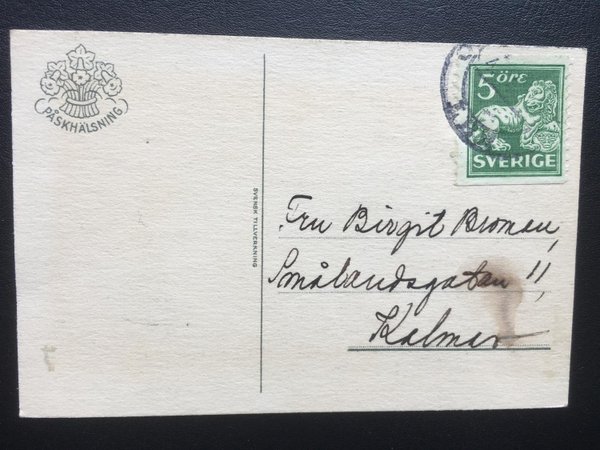 PÅSKHÄLSNING
5 ÖRE
SVERIGE
SVENSK TILLVERKNING
Fru Birgit Broman,
Smålandsgatan 11,
Kalmar